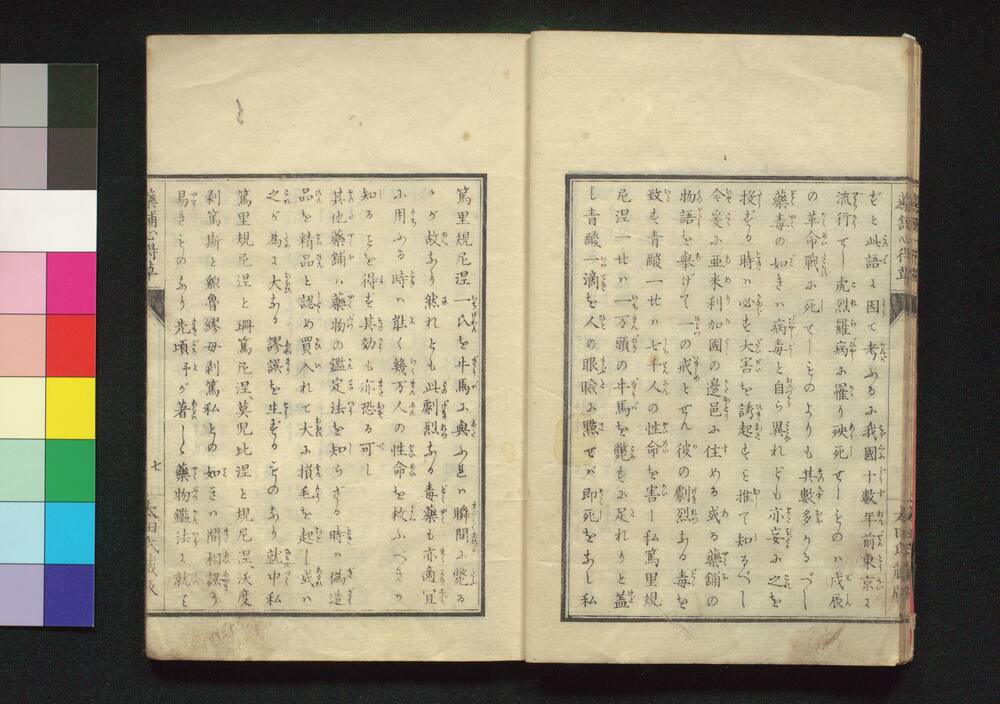 ぞと此語に因て考ふるに我國十數年前東京に
流行せし虎烈羅病に罹り殃死せしものハ戊辰
の革命戰に死せしものよりも其數多かるべし
藥毒の如きハ病毒と自ら異れども亦妄に之を
投ずる時ハ必ず大害を誘起すを推て知るべし
今爰に亜米利加國の邊邑に住める或る藥鋪の
物語を擧げて一の戒とせん彼の劇烈ある毒を
致す青酸一廿ハ七千人の性命を害し私篤里規
尼涅一廿ハ一万頭の牛馬を斃すに足れりと蓋
し青酸一滴を人の眼瞼に點せバ即死をあし私
篤里規尼涅一氏を牛馬に與ふれハ瞬間に斃る
ゝが故なり然れとも此劇烈ある毒藥も亦適宜
に用ふる時ハ能く幾万人の性命を救ふべきか
知るを得ず其効も亦恐る可し
其他藥鋪ハ藥物の鑑定法を知らざる時ハ偽造
品を精品と認め買入れて大に損毛を起し或ハ
之が為に大なる謬誤を生ずるものなり就中私
篤里規尼涅と珊篤尼涅、莫兒比涅と規尼涅、沃度
剥篤斯と貌魯繆母剥篤私との如きハ間相誤り
易きものなり先頃予が著しゝ藥物鑑法に就て
藥鋪心得草
七
太田氏藏版